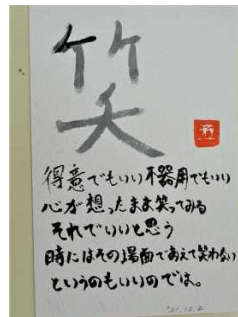 笑
得意でもいい不器用でもいい
心が想ったまま笑ってみる
それでいいと思う
時にはその場面であえて笑わない
というのもいいのでは。